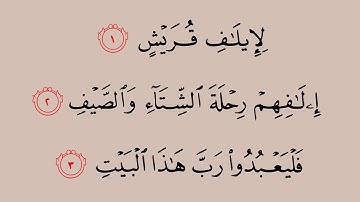 لِإِيلَٰفِ قُرَيْشٍ ١
إِۦلَٰفِهِمْ رِحْلَةَ ٱلشِّتَآءِ وَٱلصَّيْفِ ٢
فَلْيَعْبُدُوا۟ رَبَّ هَٰذَا ٱلْبَيْتِ ٣